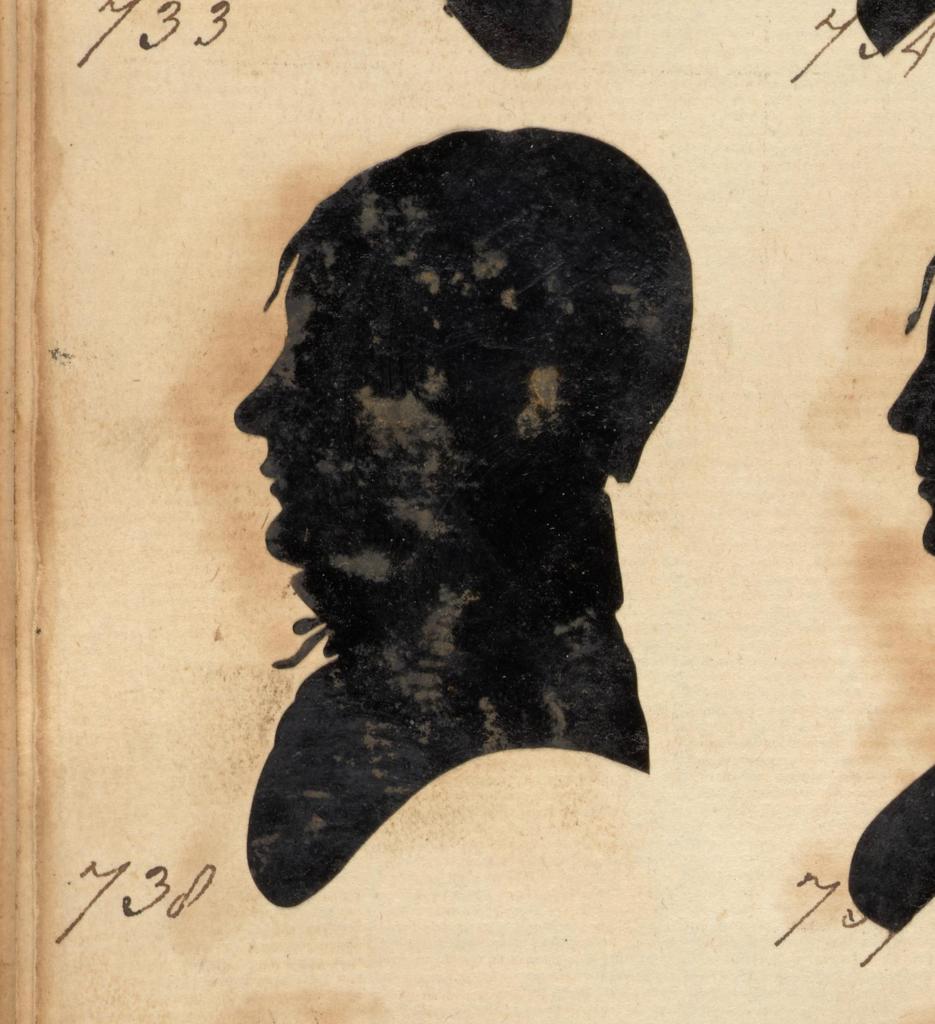 733
734
738